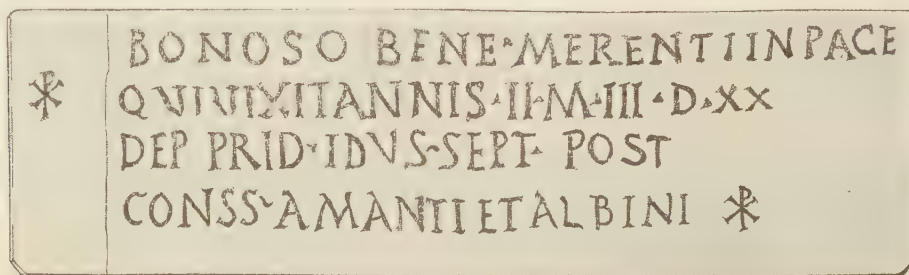 BONOSO BENE·MERENTI IN PACE
☧ QVI VIXIT ANNIS·II·M·III·D·XX
DEP PRID·IDVS·SEPT· POST
CONSS·AMANTI ET ALBINI ☧